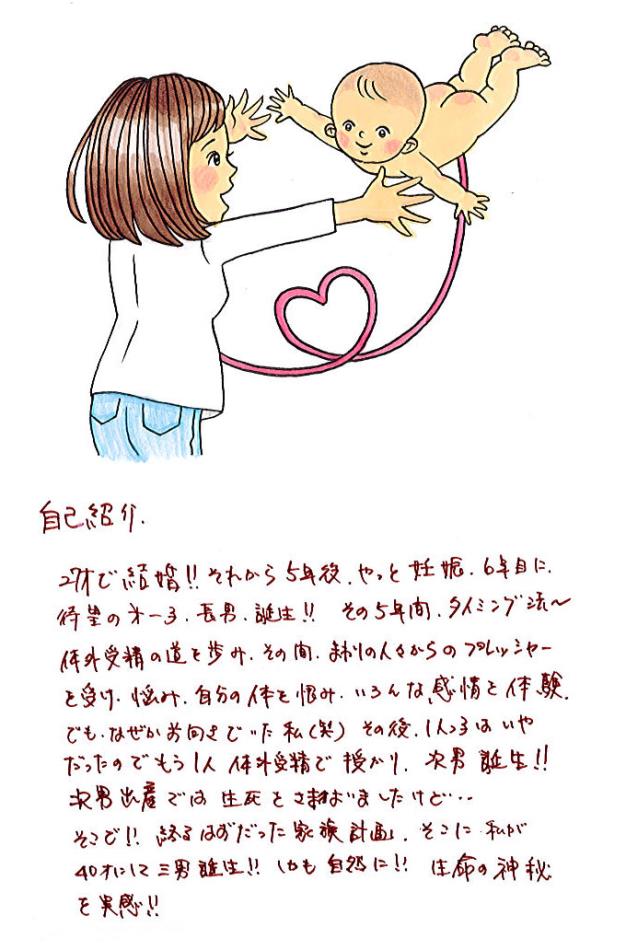 自己紹介.
27才で結婚!! それから5年後、やっと妊娠、6年目に、
待望の才一子、長男、誕生!! その5年間、タイミング法〜
体外受精の道を歩み、その間、まわりの人々からのプレッシャー
を受け、悩み、自分の体を恨み、いろんな感情を体験、
でも、なぜか前向きでいた私(笑) その後、1人っ子はいや
だったのでもう1人 体外受精で授かり、次男誕生!!
次男出産では 生死をさまよいましたけど・・
そこで!! 終るはずだった家族計画、そこに 私が
40才にして三男誕生!! しかも自然に!! 生命の神秘
を実感!!